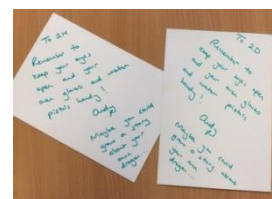 To 2H
Remember to
keep your eyes
open and your
own glass and water
pistols handy!
Andy
Maybe you could
grow a story
about your
own
dragon...
To 2D
Remember to
keep your eyes open
and your own glass
and water pistols
handy!
Andy
Maybe you could
grow a story about
your own
dragon...